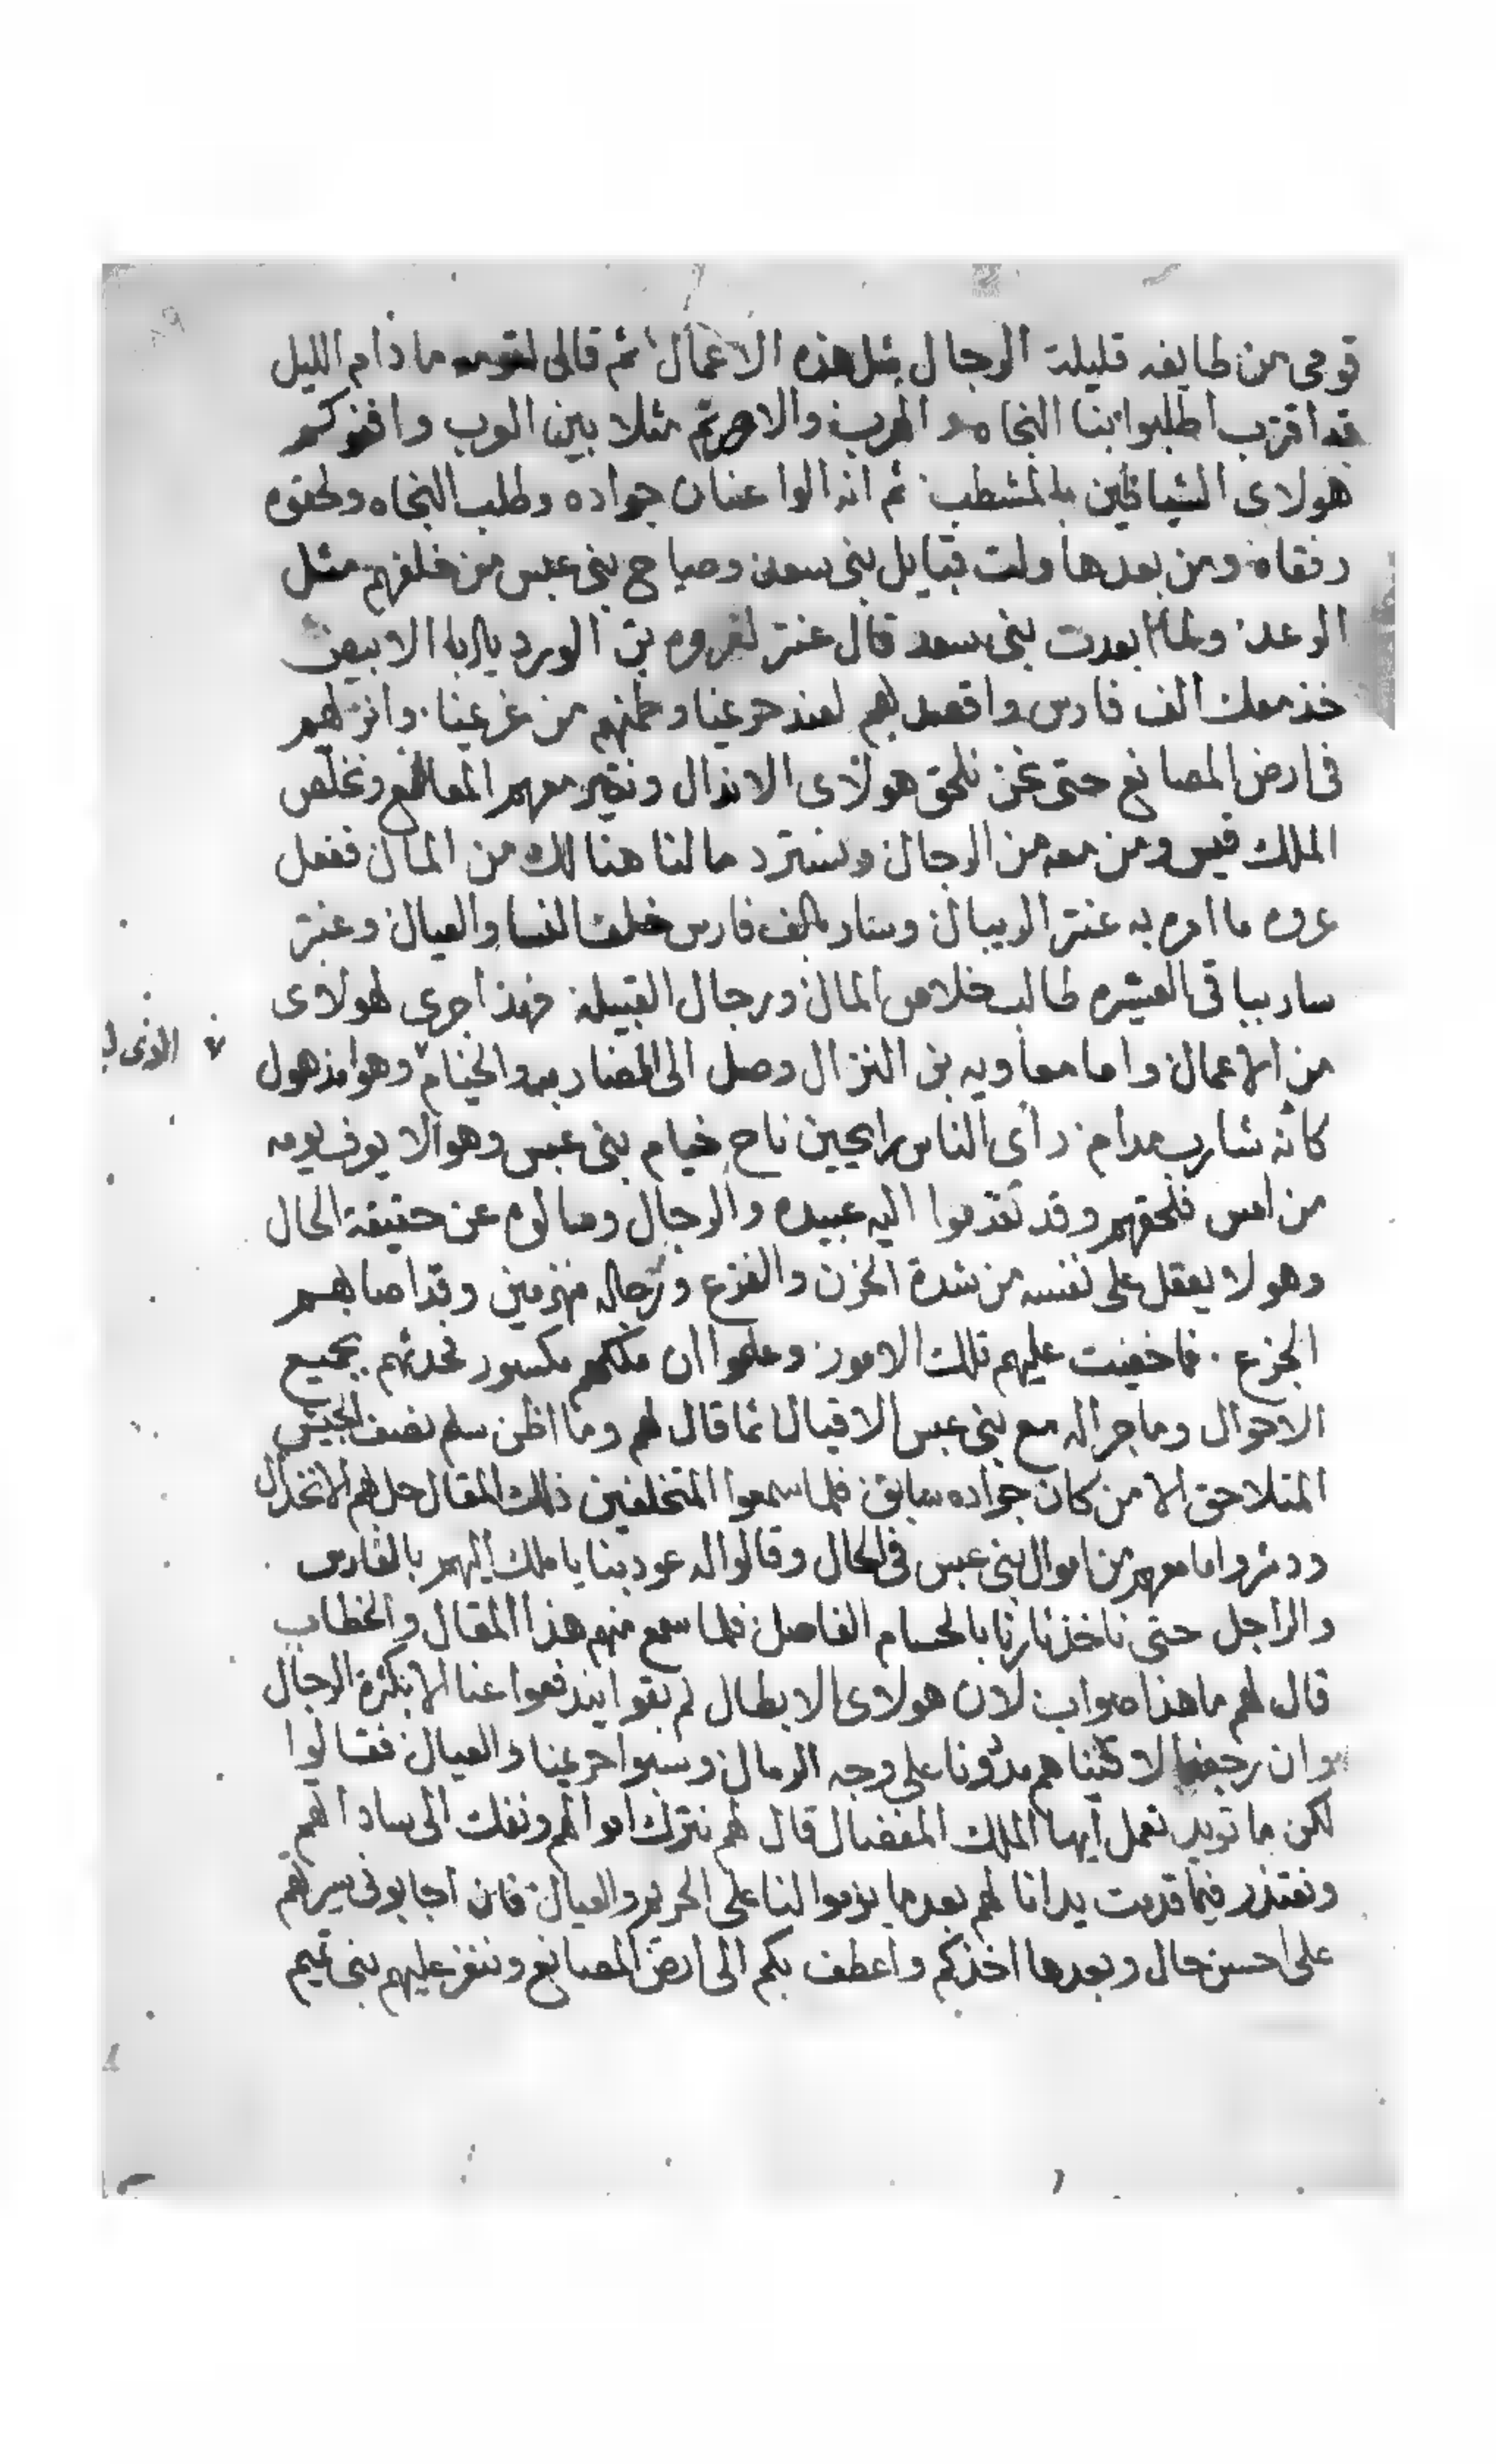 قومى من طايفه قليلة الرجال مثل هذه الاعمال ثم قال لقومه ما دام الليل
قد اقترب اطلبوا بنا النجاه والهرب والا صرتم مثلا بين العرب وافنوكم
هولاى الشياطين بالمشطب ثم انه الوا عنان جواده وطلب النجاه ولحقوه
رفقاه ومن بعدها ولت قبايل بنى سعد وصياح بنى عبس من خلفهم مثل
الرعد ولما ابعدت بنى سعد قال عنتر لعروه بن الورد يا ابا الابيض
خذ معك الف فارس واقصد بهم لعند حريمنا ومنهم من غريمنا وانزلهم
فى ارض المصانع حتى نحن نلحق هولاى الاندال ونقيم معهم المعامع ونخلص
الملك قيس ومن معه من الرجال ونسترد ما لنا هنالك من المال ففعل
عروه ما امره به عنتر الريبال وسار بالف فارس خلف النسا والعيال وعنتر
سار بباقى العشيره طالب خلاص المال ورجال القبيله فهذا جرى لهولاى
من الاعمال واما معاويه بن النزال وصل الى المضارب والخيام وهو مذهول
كانه شارب مدام راى الناس رايحين ناح خيام بنى عبس وهو لا يعرف يومه
من امس فلحقهم وقد تقدموا اليه عبيده والرجال وسالوه عن حقيقة الحال
وهو لا يعقل على نفسه من شدة الحزن والفزع ورجاله منهزمين وقد اصابهم
الجزع فاخفيت عليهم تلك الامور وعلموا ان ملكهم مكسور فحدثهم بجميع
الاحوال وما جرا له مع بنى عبس الاقيال ثما قال لهم وما اظن سلم نصف الجيش
المتلاحق الا من كان جواده سابق فلما سمعوا المتخلفين ذلك المقال حل بهم الانخذال
ودشروا ما معهم من اموال بنى عبس فى الحال وقالوا له عود بنا يا ملك اليهم بالفارس
والراجل حتى ناخذ ثارنا بالحسام الفاصل فلما سمع منهم هذا المقال والخطاب
قال لهم ما هذا صواب لان هولاى الابطال لم بقوا يندفعوا عنا الا بكثرة الرجال
وان رجعنا لاقيناهم بددونا على وجه الرمال وسبوا حريمنا والعيال فقالوا
لكن ما تريد تعمل ايها الملك المفضال قال لهم نترك اموالهم ونفك الى ساداتهم
ونعتذر فيما قدمت يدانا لهم بعدما يذموا لنا على الحريم والعيال فان اجابونى سيرتهم
على احسن حال وبعدها اخذكم واعطف بكم الى ارض المصانع وننفر عليهم بنى تميم